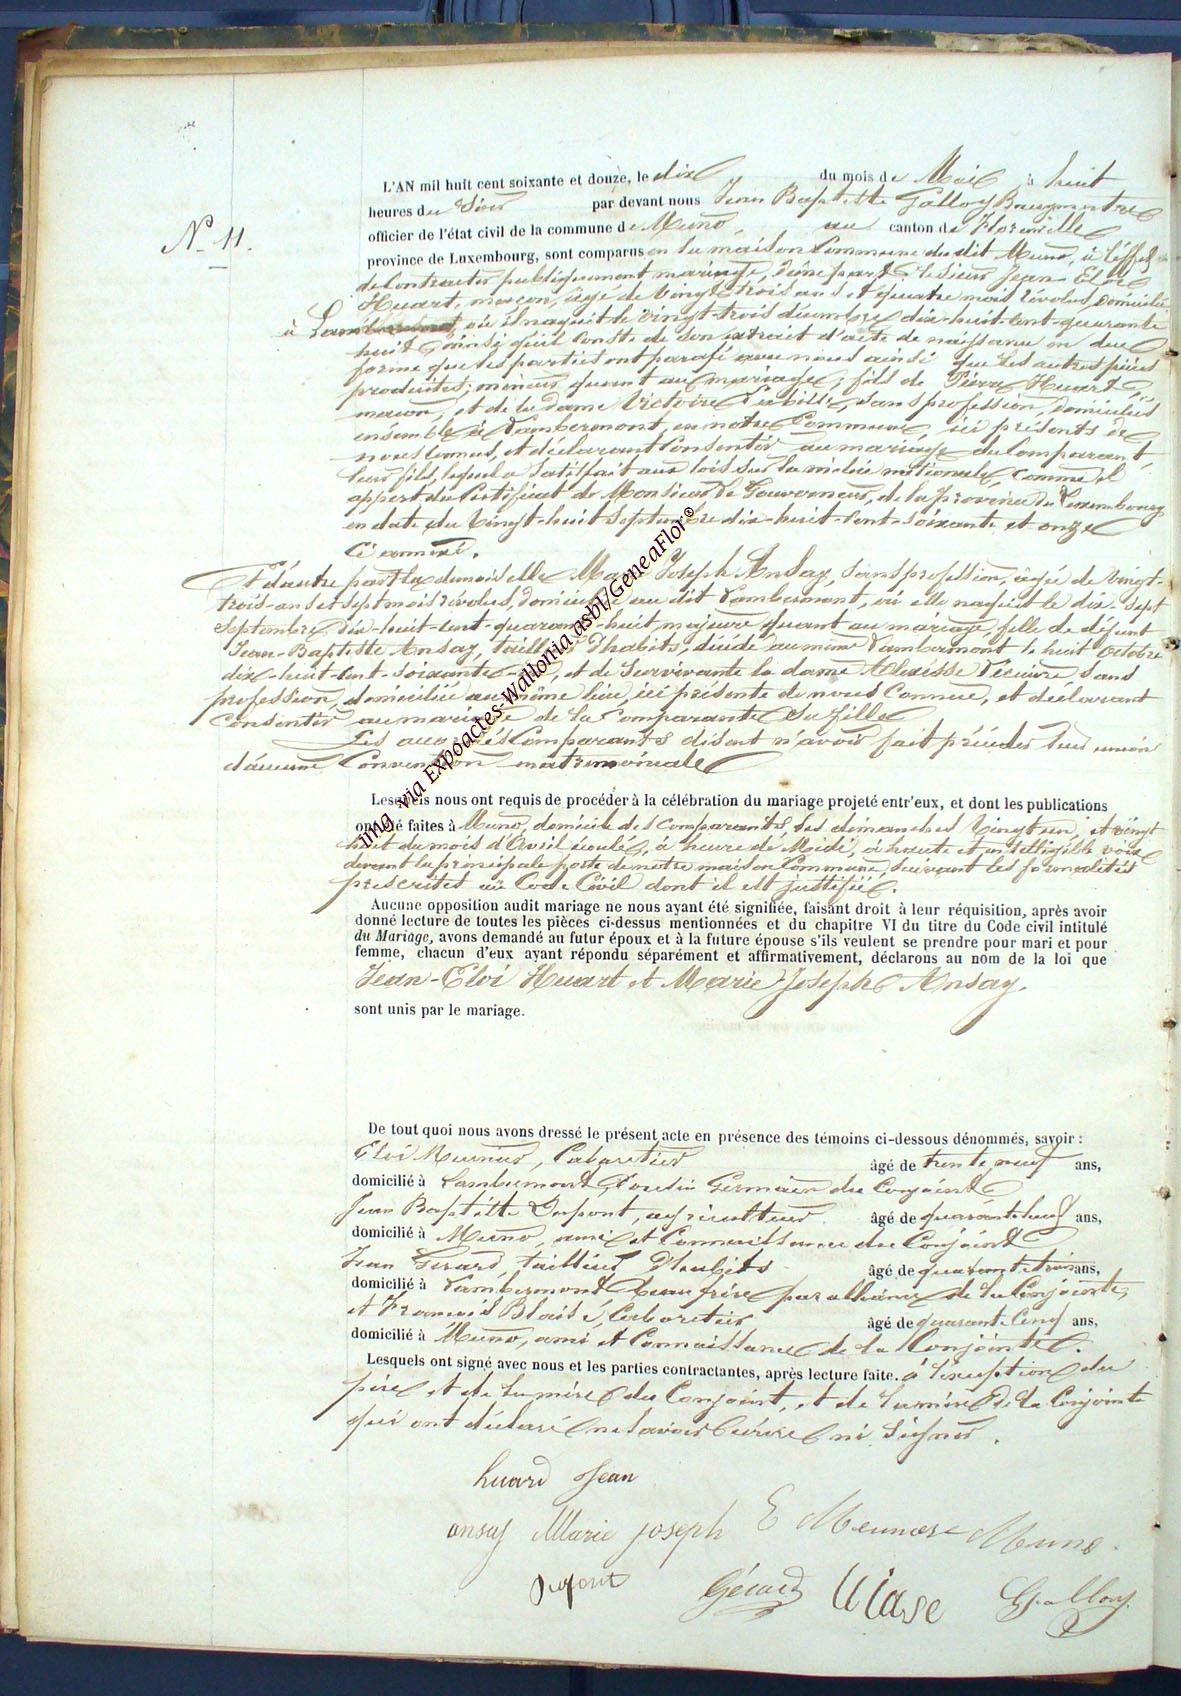 N° 11.
L'AN mil huit cent soixante et douze, le dix du mois de Mai à huit
heures du Soir par devant nous Jean Baptiste Galloy Bourgmestre
officier de l'état civil de la commune de Muno, au canton de Florenville
province de Luxembourg, sont comparus en la maison Commune du dit Muno, à l'effet
de Contracter publiquement mariage, d'une part le sieur Jean Eloi
Huart, maçon, âgé de Vingt-trois ans et quatre mois révolus, domicilié
à Lambermont, où il naquit le Vingt-trois décembre dix-huit-cent-quarante
huit ainsi qu'il conste de son extrait d'acte de naissance en due
forme que les parties ont parafé avec nous ainsi que les autres pièces
produites; mineur quant au mariage, fils de Pierre Huart,
maçon, et de la dame Victoire, sans profession, domiciliés
ensemble à Lambermont, en notre Commune, ici présents de
nous connus, et déclarant Consentir au mariage du Comparant,
leur fils, lequel a Satisfait aux lois sur la milice nationale, comme il
appert du Certificat de Monsieur Le Gouverneur, de la province du Luxembourg
en date du Vingt-huit Septembre dix-huit-Cent-Soixante et onze
Ci annexé.
Et d'autre part la demoiselle Marie Joseph Ansay, Sans profession, âgée de Vingt-
trois-ans et Sept mois révolus, domiciliée au dit Lambermont, où elle naquit le dix-Sept
Septembre dix-huit-cent-quarante-huit, majeure quant au mariage, fille de défunt
Jean-Baptiste Ansay, tailleur d'habits, décédé au même Lambermont le huit Octobre
dix-huit-Cent-Soixante, et de Survivante la dame Lécuivre Sans
profession, domiciliée au même lieu, ici présente de nous Connue, et déclarant
Consentir au mariage de la Comparante Sa fille
Les Comparants disent n'avoir fait précéder leur union
d'aucune Convention matrimoniale
Lesquels nous ont requis de procéder à la célébration du mariage projeté entr'eux, et dont les publications
ont été faites à Muno, domicile des Comparants, les dimanches Vingt un et Vingt
huit du mois d'Avril écoulé, à heure de Midi, à haute et intelligible voix
devant la principale porte de notre maison Commune, Suivant les formalités
prescrites au Code Civil dont il est justifié.
Aucune opposition audit mariage ne nous ayant été signifiée, faisant droit à leur réquisition, après avoir
donné lecture de toutes les pièces ci-dessus mentionnées et du chapitre VI du titre du Code civil intitulé
du Mariage, avons demandé au futur époux et à la future épouse s'ils veulent se prendre pour mari et pour
femme, chacun d'eux ayant répondu séparément et affirmativement, déclarons au nom de la loi que
Jean-Eloi Huart et Marie Joseph Ansay.
sont unis par le mariage.
De tout quoi nous avons dressé le présent acte en présence des témoins ci-dessous dénommés, savoir :
Eloi Meunier, Cabaretier âgé de trente neuf ans,
domicilié à Lambermont, Cousin Germain du Conjoint
Jean Baptiste Dupont, agriculteur âgé de quarante ans,
domicilié à Muno, ami et Connaissance du Conjoint
Jean Gerard, tailleur d'habits âgé de quarante trois ans,
domicilié à Lambermont Beau frère par alliance de la Conjointe,
et François Blaise, Cabaretier âgé de quarante Cinq ans,
domicilié à Muno, ami et Connaissance de la Conjointe.
Lesquels ont signé avec nous et les parties contractantes, après lecture faite. à l'exception du
père et de la mère du Conjoint, et de la mère de la Conjointe
qui ont déclaré ne savoir écrire ni Signer.
huard Jean
ansay Marie joseph E Meunier Muno.
Dupont Gérard Blaise Galloy
img via Expoactes-Wallonia asbl/GeneaFlor®